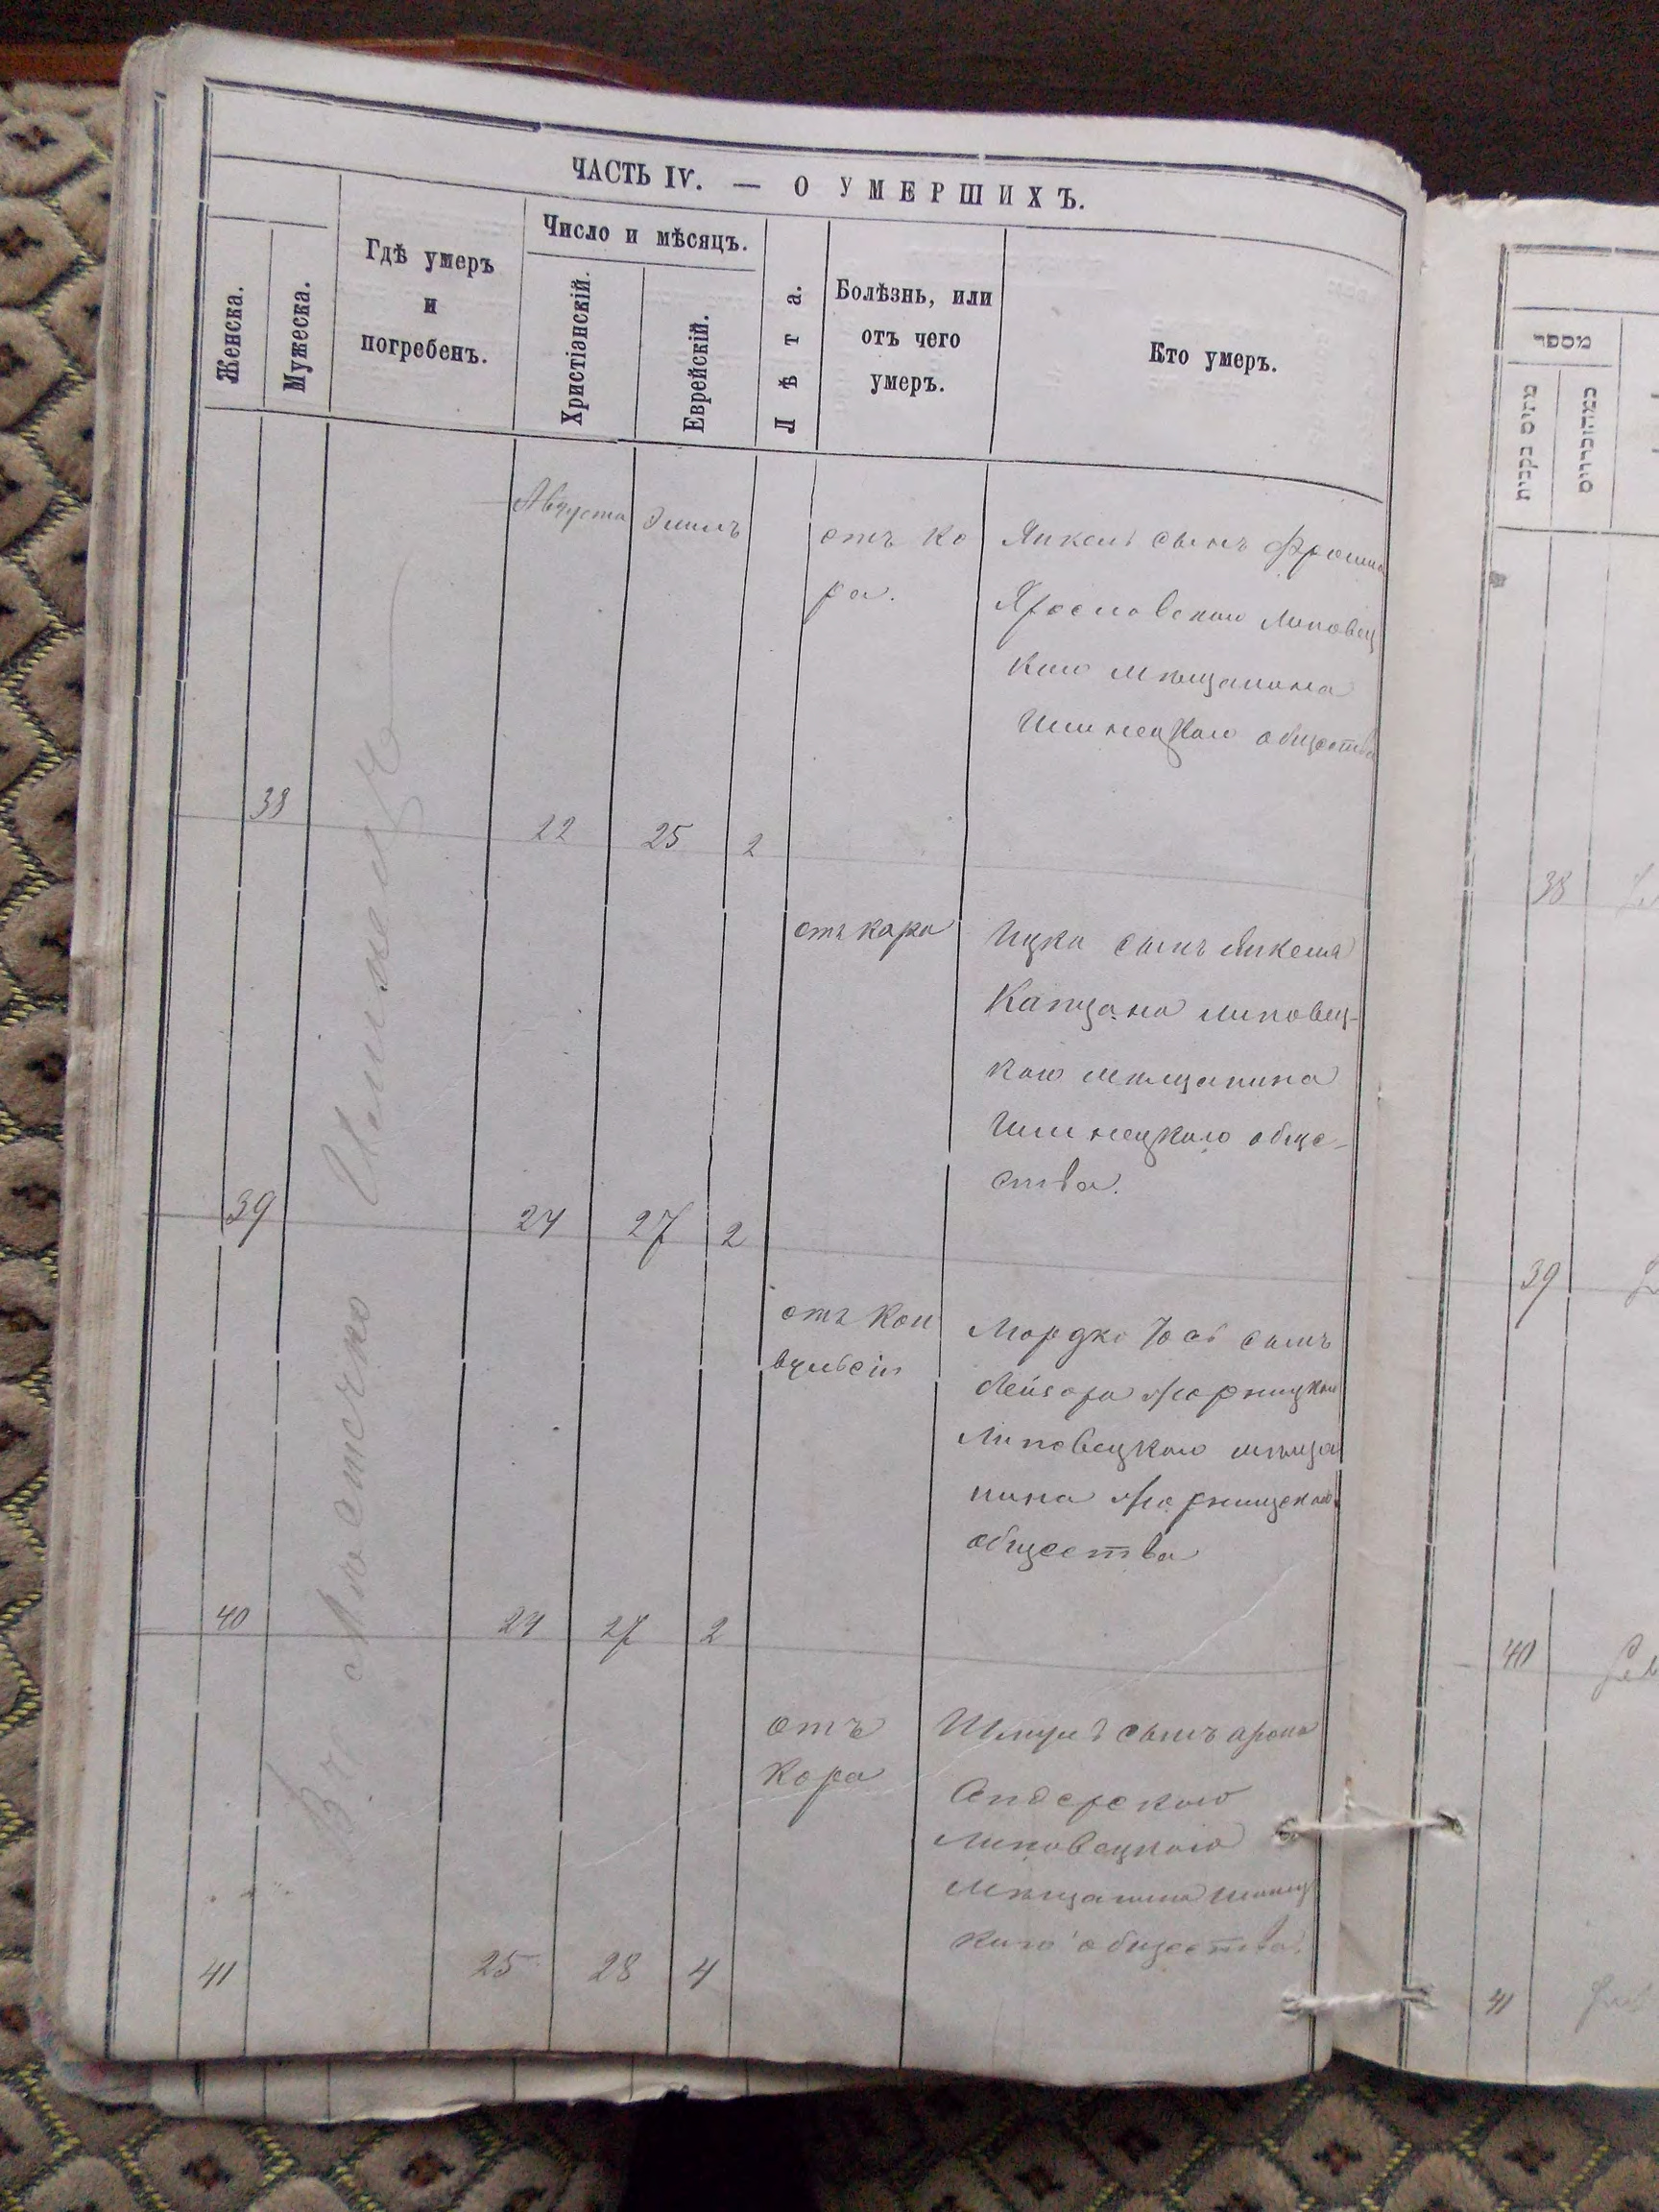 ЧАСТЬ IV. — О УМЕРШИХЪ.
Женска.
Мужеска.
Гдѣ умеръ
и
погребенъ.
Число и мѣсяцъ.
Христіанскій.
Еврейскій.
Лѣта.
Болѣзнь, или
отъ чего
умеръ.
Кто умеръ.
Въ Местечко Илинецъ
Августа
отъ ко
ра.
Янкель сынъ Фроима
Ярославского Липовец
кого мѣщанина
Илинецкого общества
38 22 25 2
отъ кора
Ицко сынъ Янкеля
Капцана липовец-
кого мѣщанина
Илинецкого обще-
ства.
39 24 27 2
отъ кон
вульсіи
Мордко Іось сынъ
Лейзора
Липовецкого мѣща
нина
общества
40 24 27 2
отъ
кора
Шмуль сынъ арона
Липовецкого
Мѣщанина Илинец
кого общества.
41 25 28 4
מספר
38
39
40
41